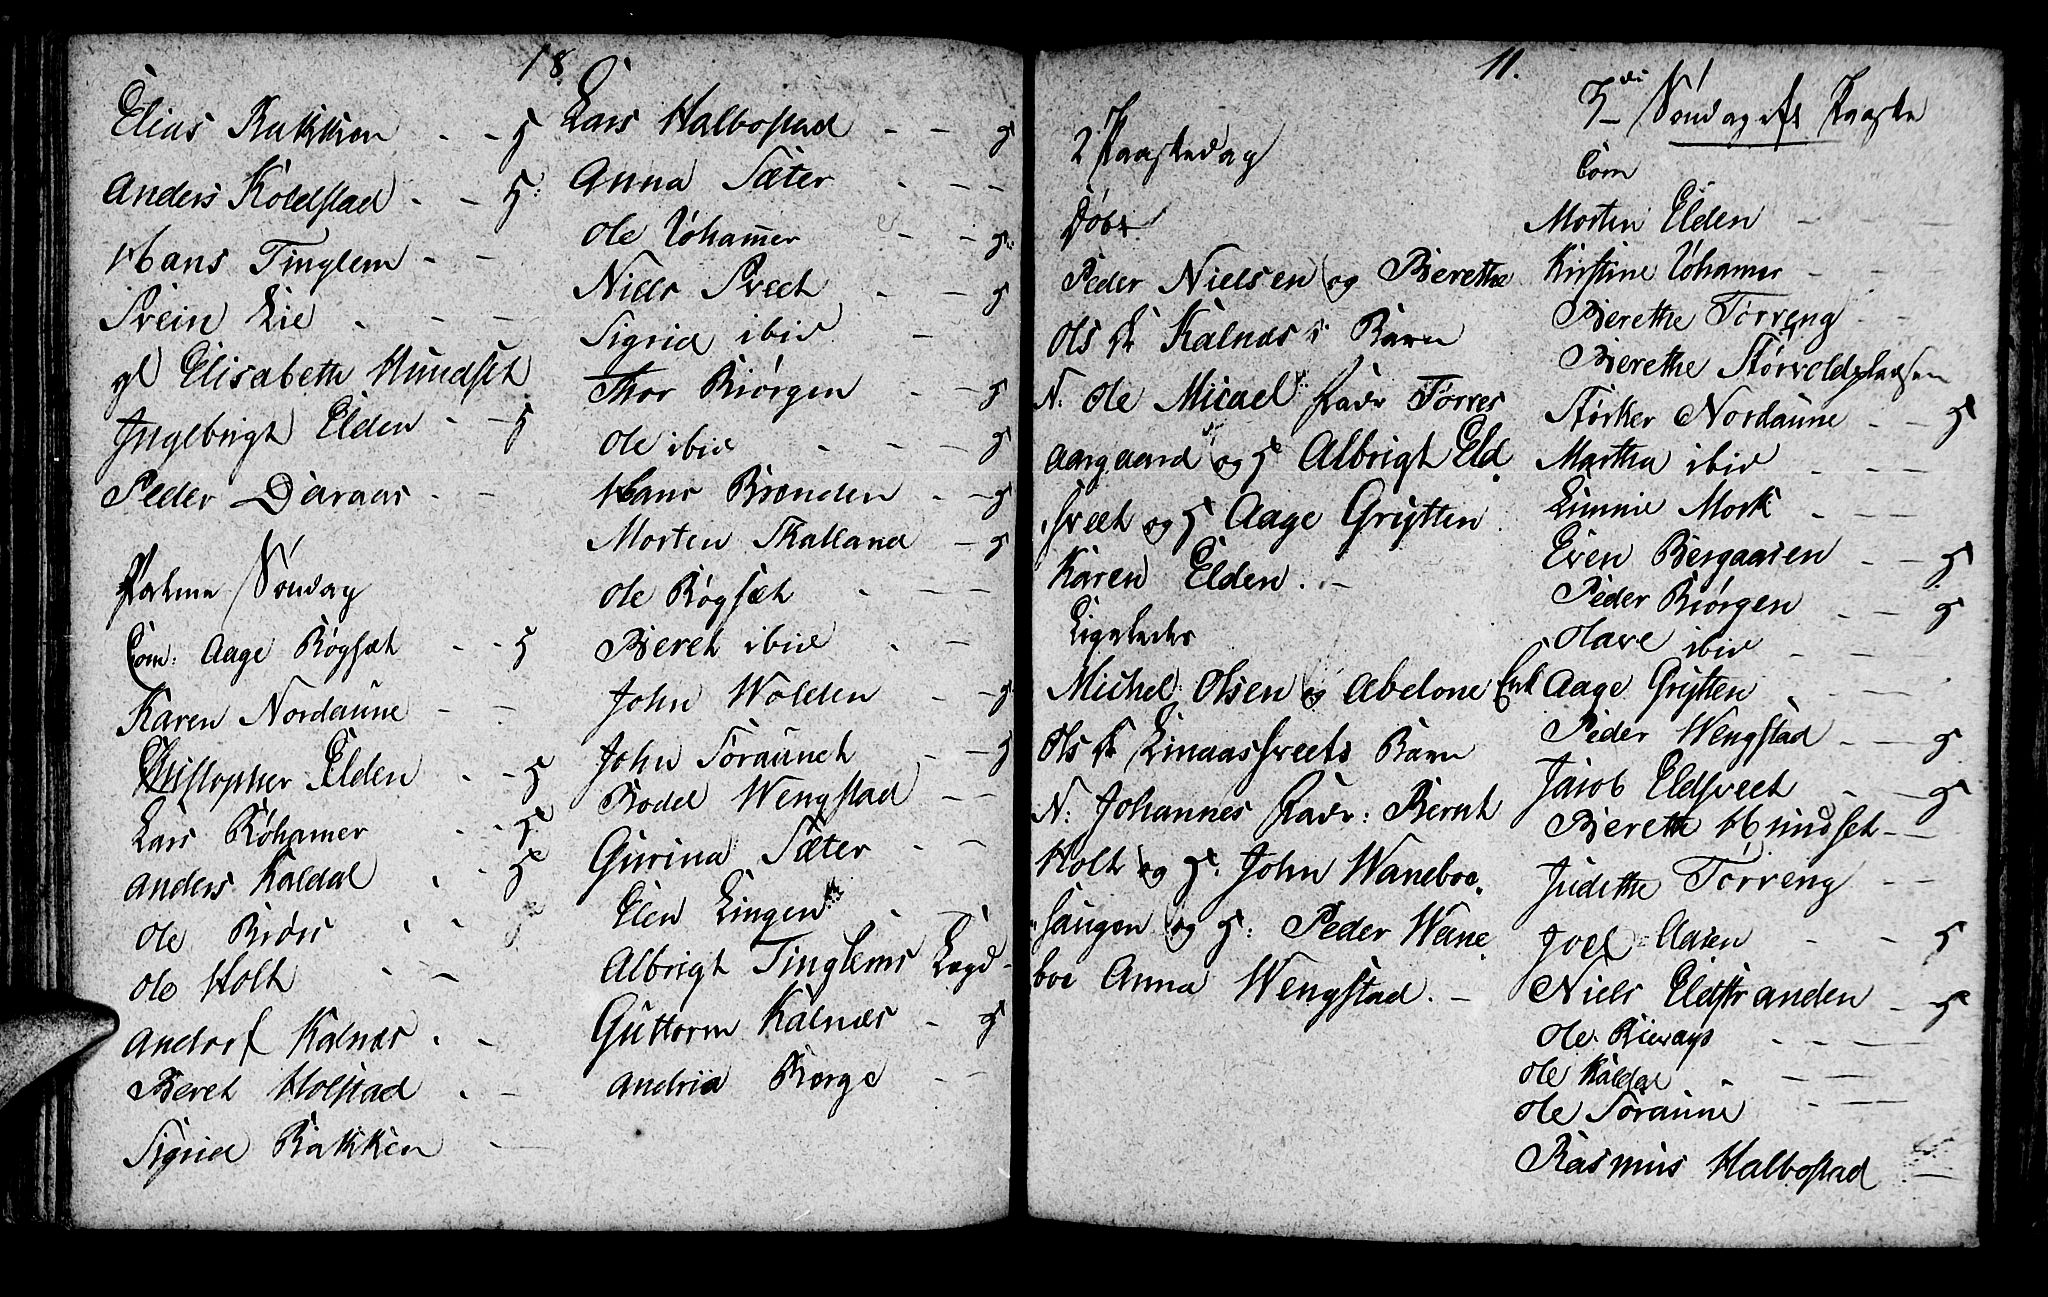 18
Elias Bakken - - 5
Anders Koldstad - - 5:
Hans Tinglem - -
Svein Lie - - -
gl Elisabeth Hundset
Ingebrigt Elden - - 5
Peder Daraas - -
Palme Søndag
Com: Aage Røgsæt - - 5
Karen Nordaune - -
Christopher Elden - - 5
Lars Røhamer - - 5e
Anders Kaldal - - 5e
Ole Biørs - -
Ole Holt - -
Andors Kalnæs - -
Beret Holstad - -
Sigrid Bakken - -
Lars Halbostad - - 5
Anna Sæter - - -
Ole Røhamer - - 5:
Niels Sveet - - 5
Sigrid ibid -
Thor Biørgen - - 5
Ole ibid - - 5
Hans Brenden - - 5
Morten Skalland - 5
Ole Røgsæt - - -
Beret ibid - -
John Wolden - - 5
John Søraunet - - 5
Bodel Wengstad - -
Gurina Sæter - -
Elen Lingen
Albrigt Tinglems Lægd -
Guttorm Kalnæs - 5
Andria Borge - -
11.
2 Paaskedag
Døbt
Peder Nielsen og Berethe
Ols Dr Kalnæs's Barn
N: Ole Micael Fadr Torres
aargaard og 5e Albrigt Eld
Sveet og 5 Aage Grytten
Karen Elden. -
Ligeledes
Michel Olsen og Abelone Enk
Ols Dr Linaassveets Barn
N: Johannes Fadr: Bernt
Holt og 5e. John Waneboe
haugen og 5: Peder Wane
boe Anna Wengstad. -
3die Søndag efr Paaske
Com
Morten Elden - -
Kirstine Røhamer - -
Berethe Tørreng - -
Berethe Størvoldpladsen
Størker Nordaune - - 5
Martha ibid - - -
Limnie Mork - - -
Even Bergaaren - - 5
Peder Biørgen - - 5
Olave ibid - - -
Aage Grytten - - -
Peder Wengstad - - 5
Jacob Eldsveet - - 5
Bereth Hundset - -
Judithe Tørreng - -
Joel Aasen - - 5
Niels Eldstranden - 5
Ole - - - -
Ole Kaldal - - -
Ole Søraune - - -
Rasmus Halbostad -